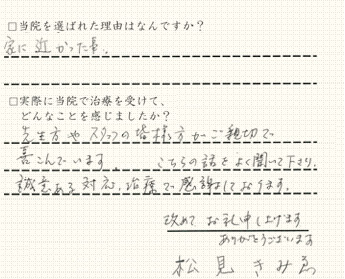 □当院を選ばれた理由はなんですか？
家に近かった事。
□実際に当院で治療を受けて、
どんなことを感じましたか？
先生方やスタッフの皆様方がご親切で
喜こんでいます。 こちらの話をよく聞いて下さり、
誠意ある対応、治療で感謝しております。
改めてお礼申し上げます
ありがとうございます
松見きみゑ